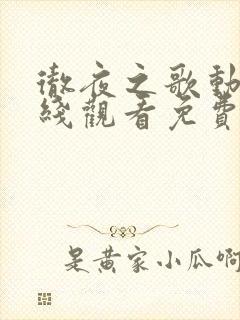 徹夜之歌動
綫觀看免費
是黄家小瓜啊